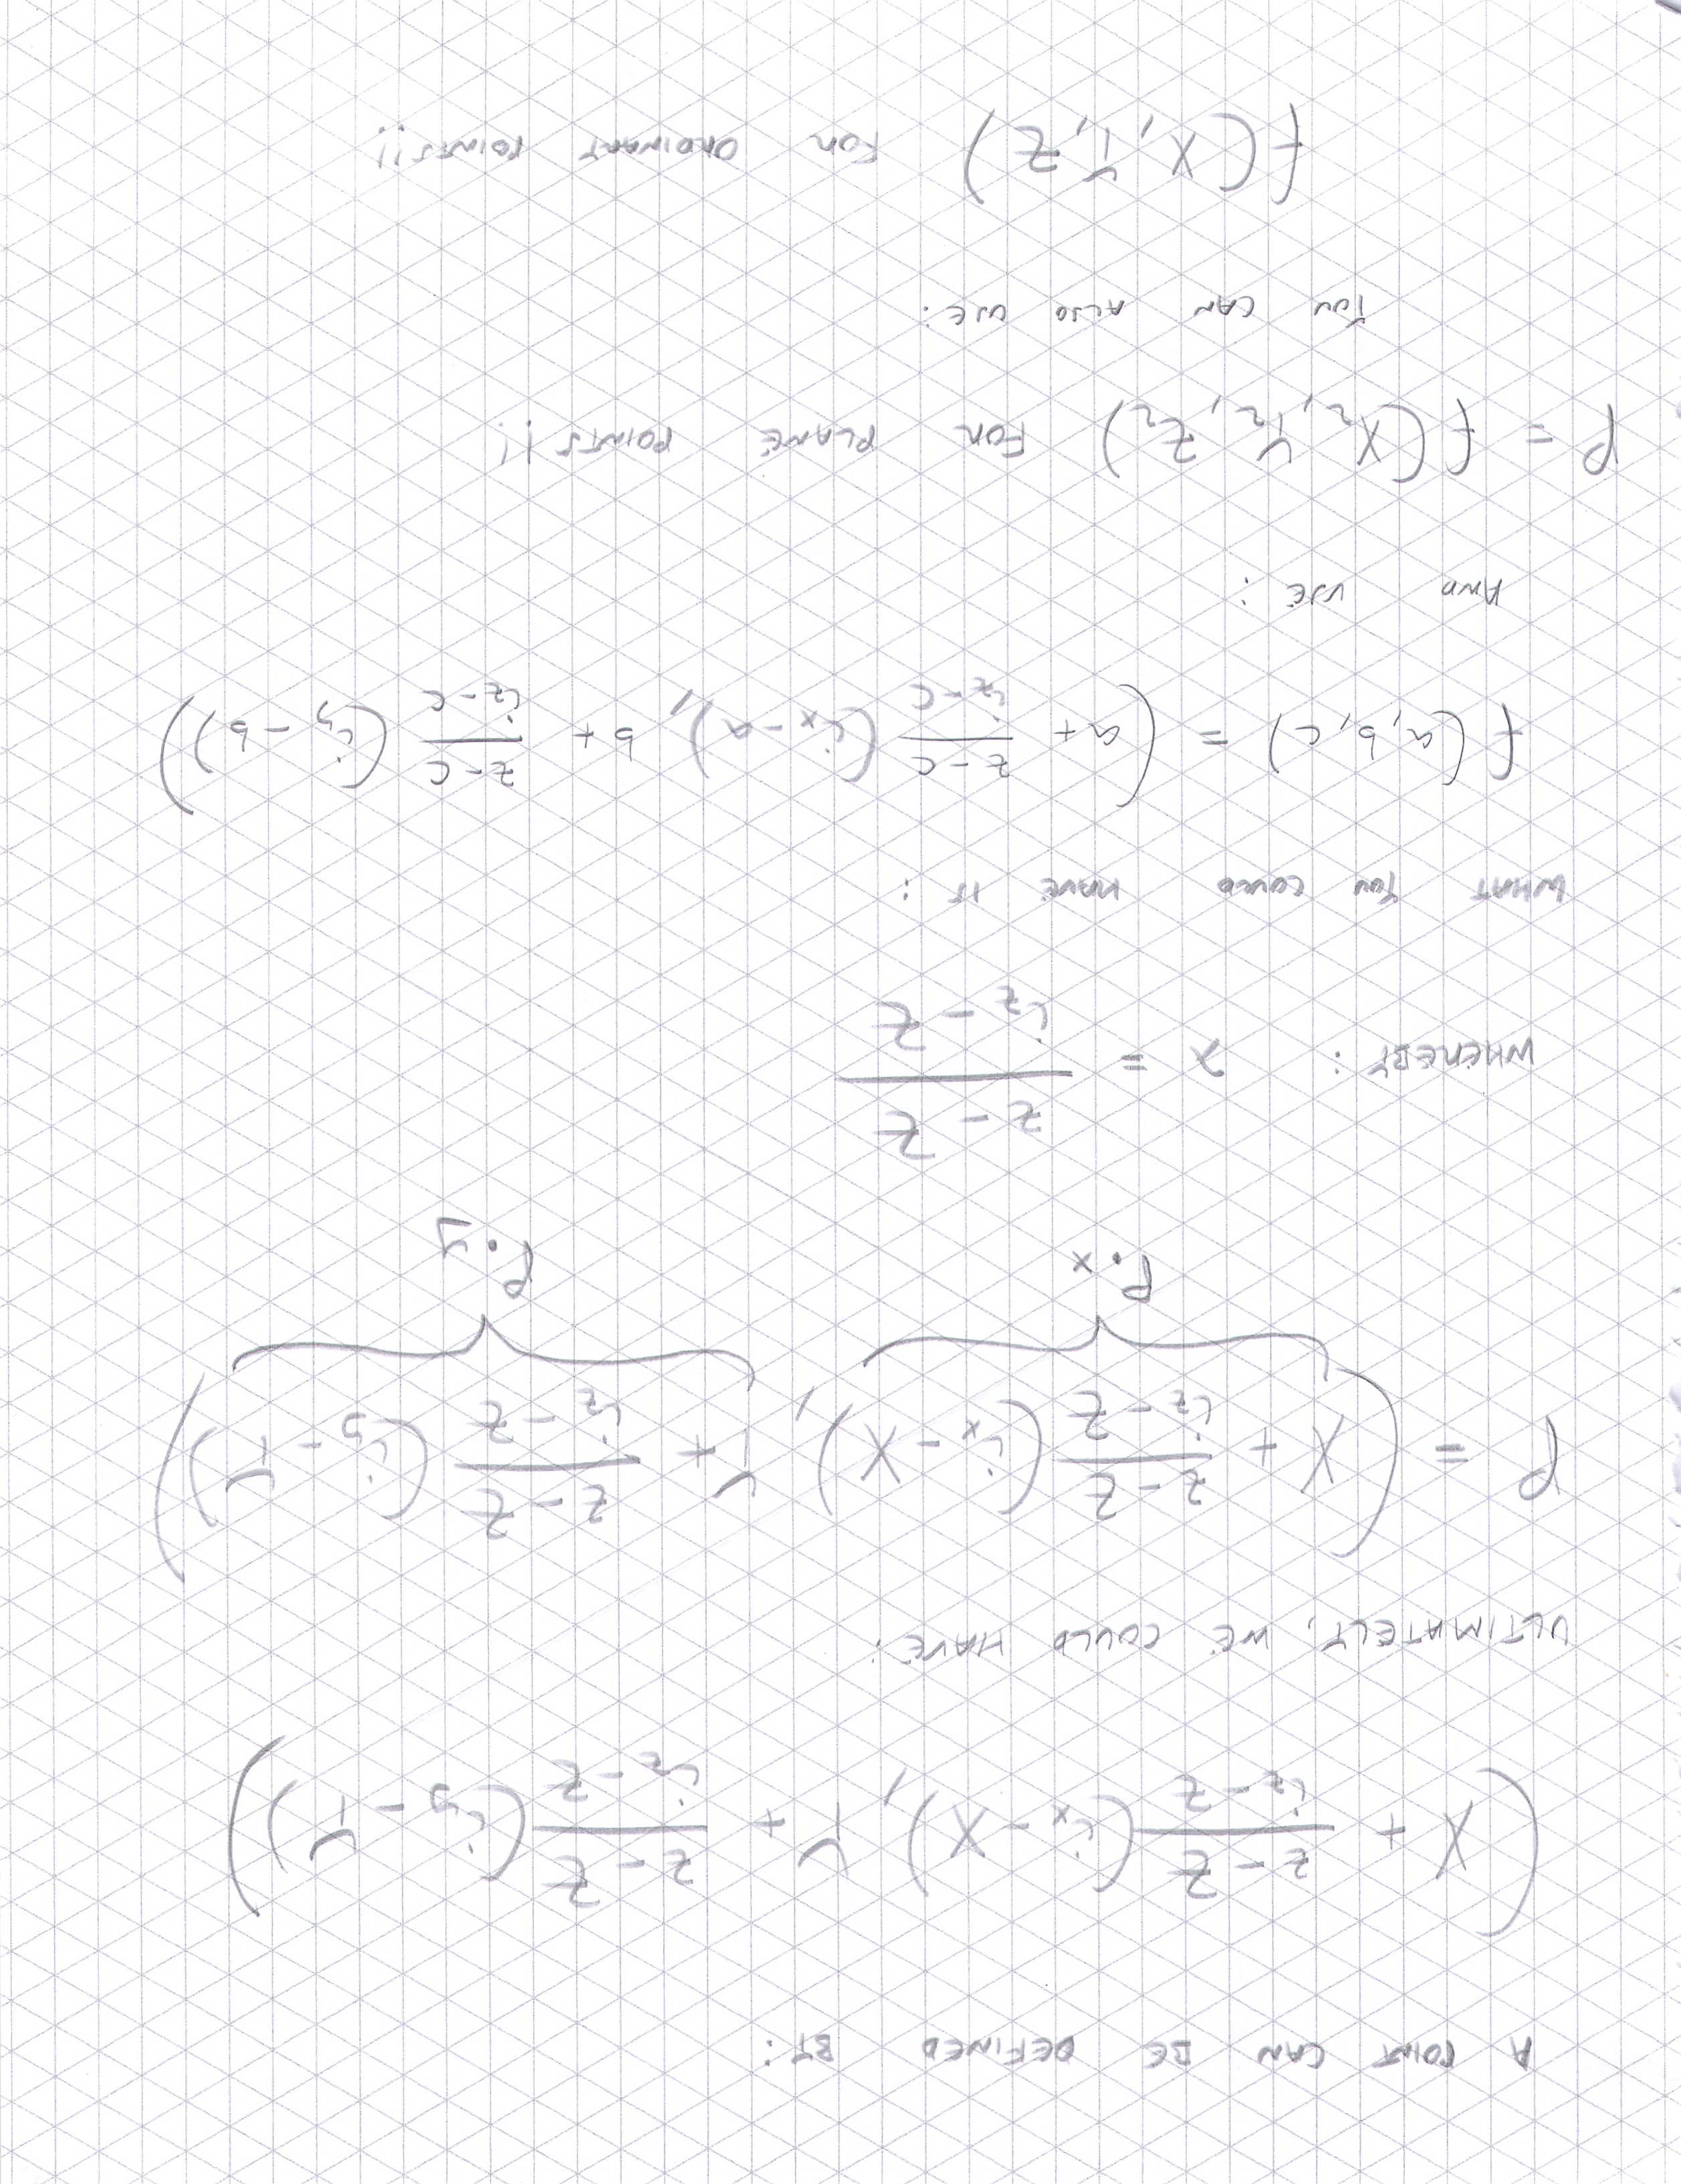 A POINT CAN BE DEFINED BY:
(X + \frac{z-Z}{i_z-Z}(i_x-X), Y + \frac{z-Z}{i_z-Z}(i_y-Y))
ULTIMATELY, WE COULD HAVE:
P = (X + \frac{z-Z}{i_z-Z}(i_x-X), Y + \frac{z-Z}{i_z-Z}(i_y-Y))
P.x P.y
WHEREBY: λ = \frac{z-Z}{i_z-Z}
WHAT YOU COULD HAVE IS:
f(a,b,c) = (a + \frac{z-c}{i_z-c}(i_x-a), b + \frac{z-c}{i_z-c}(i_y-b))
AND USE:
P = f(X_2, Y_2, Z_2) FOR PLANE POINTS!!
YOU CAN ALSO USE:
f(X, Y, Z) FOR ORDINARY POINTS!!